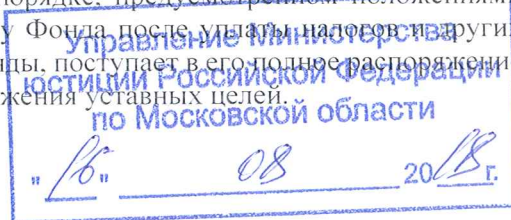 порядке, предусмотренном положениями
у Фонда после уплаты налогов и други
цы, поступает в его полное распоряжени
жения уставных целей.
Управление Министерства
юстиции Российской Федерации
по Московской области
"16" 08 2018 г.